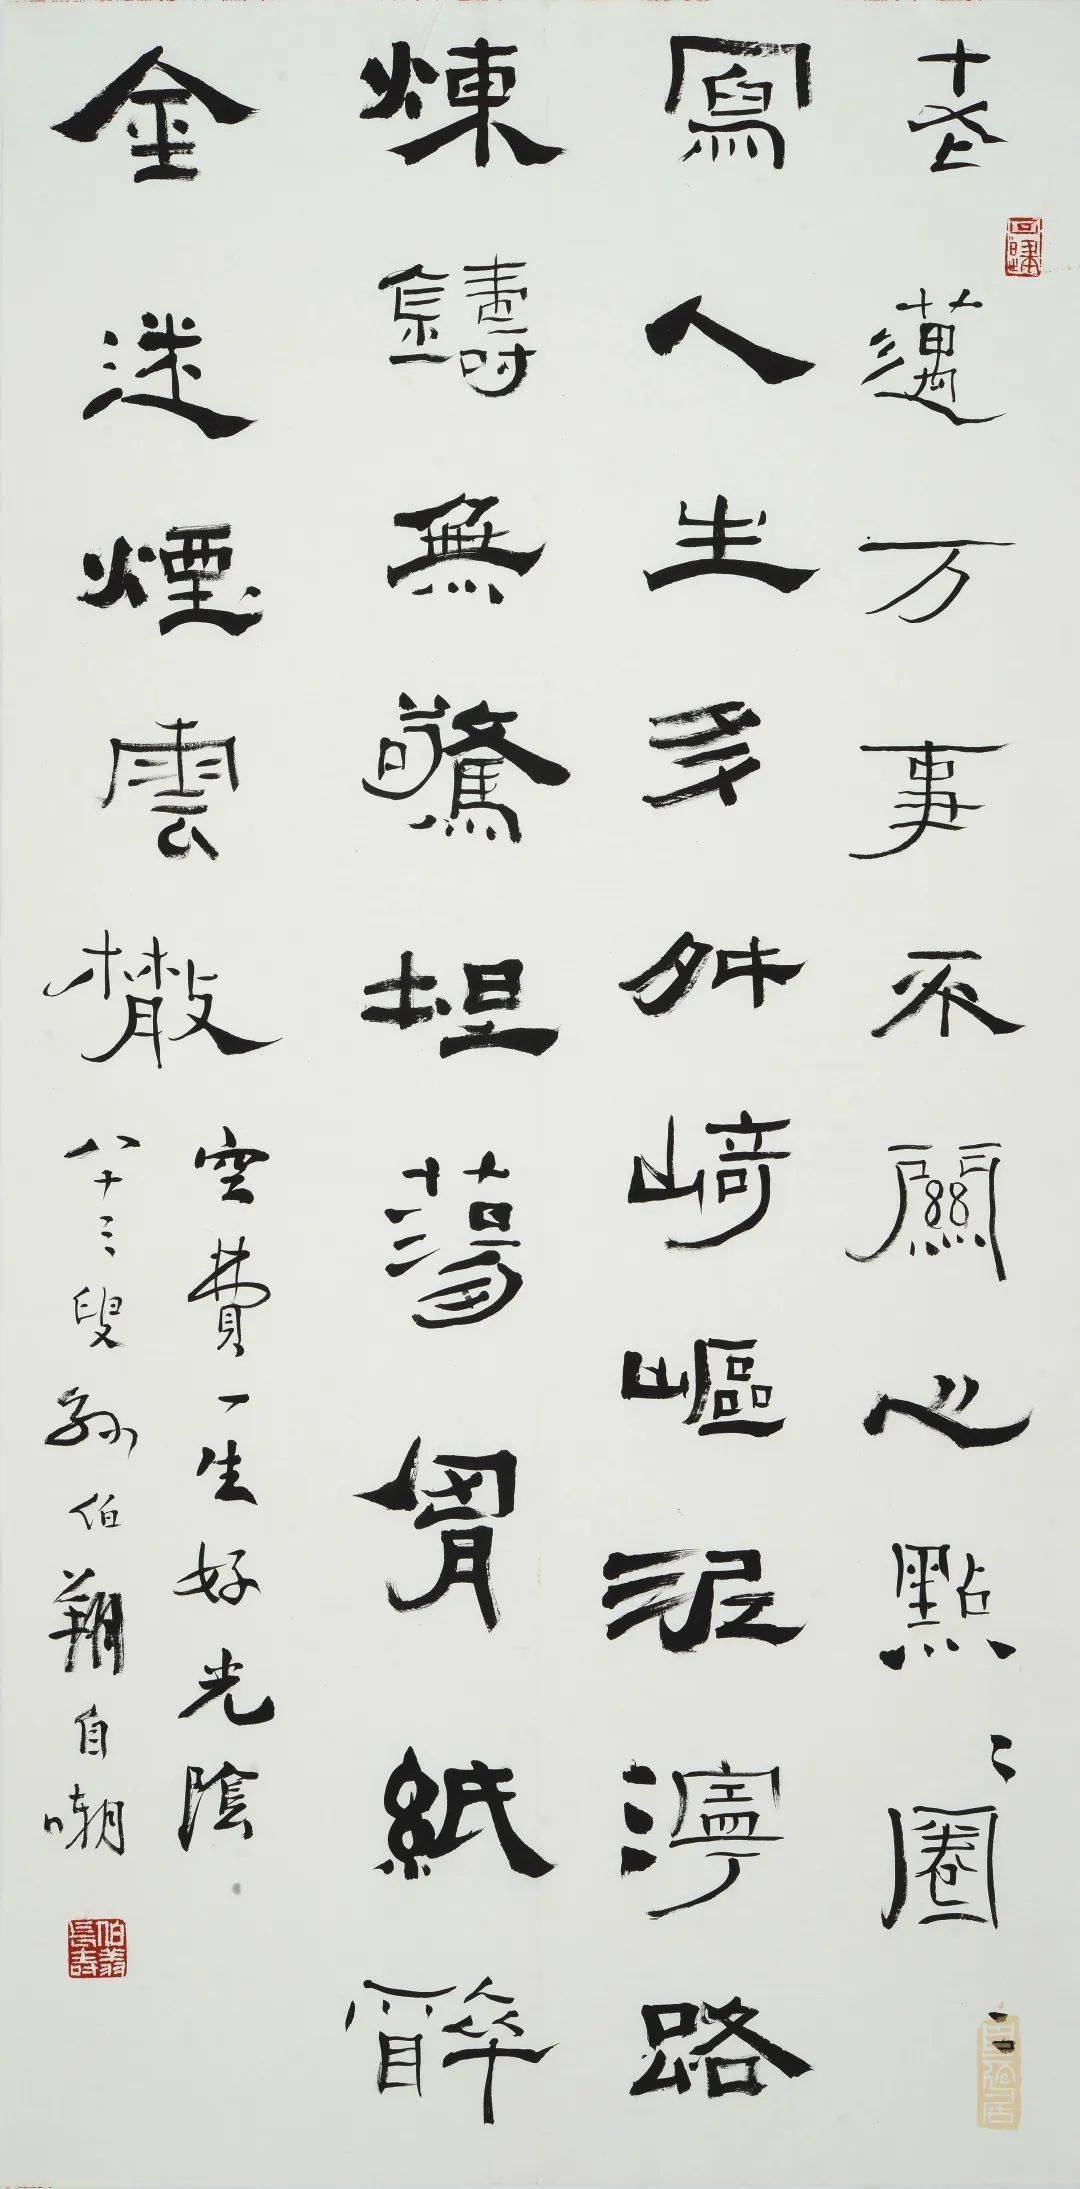 老邁万事不關心點〻圈〻
寫人生多舛崎嶇泥濘路
煉鑄無驚坦蕩胷紙醉
金迷煙雲散
空費一生好光陰
八十三叟孫伯翔自嘲
伯翔長壽